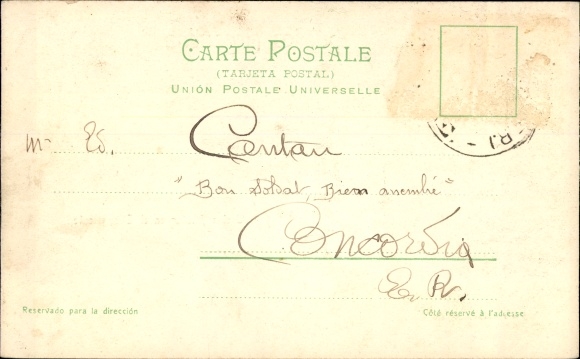 CARTE POSTALE
(TARJETA POSTAL)
UNIÓN POSTALE UNIVERSELLE
Mr Ed. Cantau
"Bon Sohat, Bien
Concordia
E. R.
Reservado para la dirección
Côté réservé à l'adresse